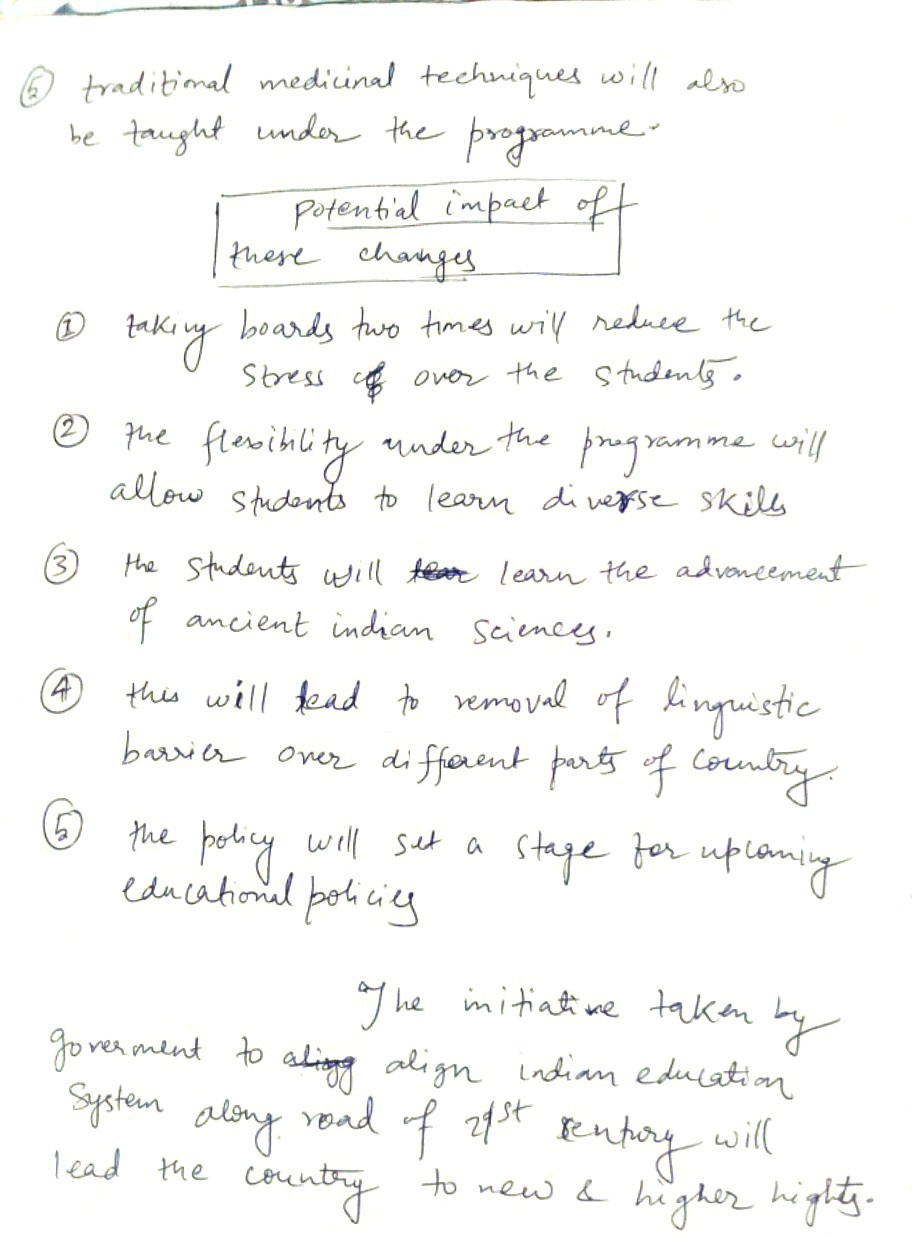 ⑤ traditional medicinal techniques will also
be taught under the programme.
Potential impact of
these changes
① taking boards two times will reduce the
stress of over the students.
② the flexibility under the programme will
allow students to learn diverse skills
③ the students will lear learn the advancement
of ancient indian sciences.
④ this will lead to removal of linguistic
barrier over different parts of country.
⑤ the policy will set a stage for upcoming
educational policies
The initiative taken by
goverment to align indian education
system along road of 21st century will
lead the country to new & higher hights.